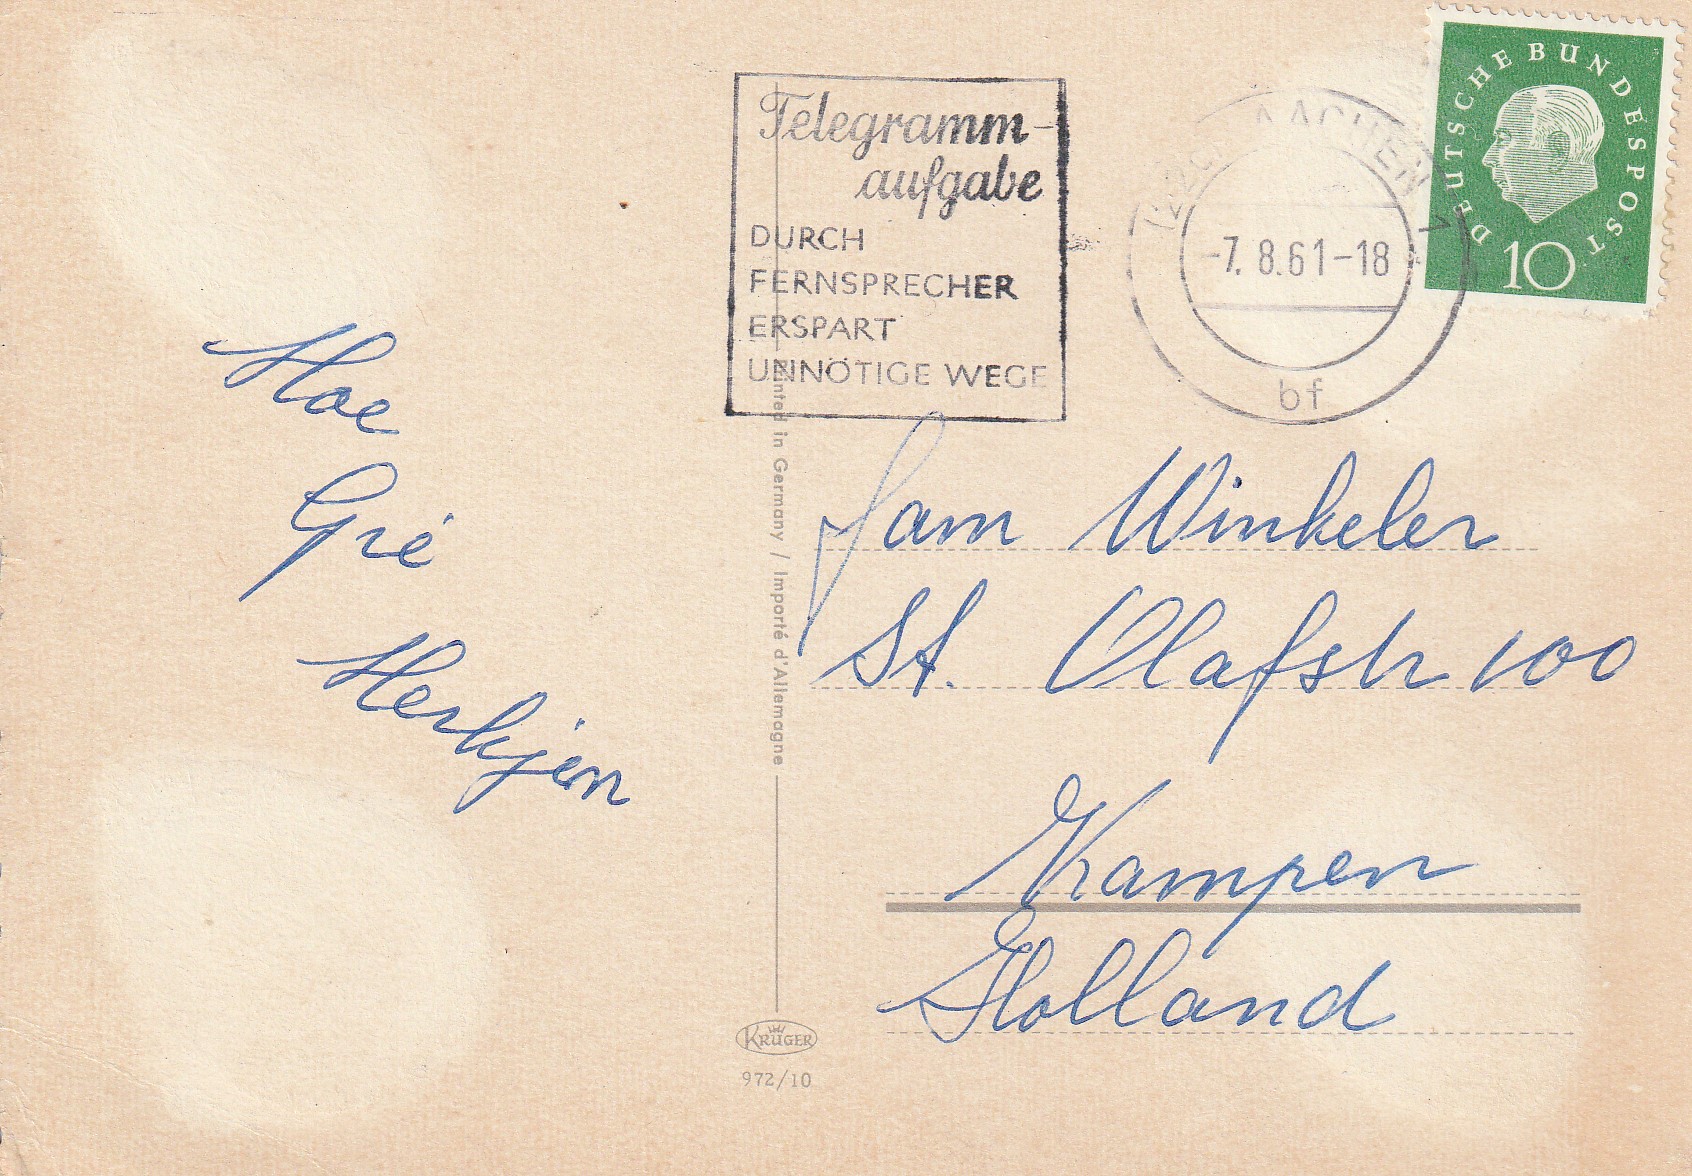 Telegramm-
aufgabe
DURCH
FERNSPRECHER
ERSPART
UNNÖTIGE WEGE
AACHEN 1
-7.8.61-18
bf
DEUTSCHE BUNDESPOST
10
Hoe
Gré
Herkjen
Printed in Germany / Importé d'Allemagne
Fam Winkeler
St. Olafstr 100
Kampen
Holland
KRÜGER
972/10